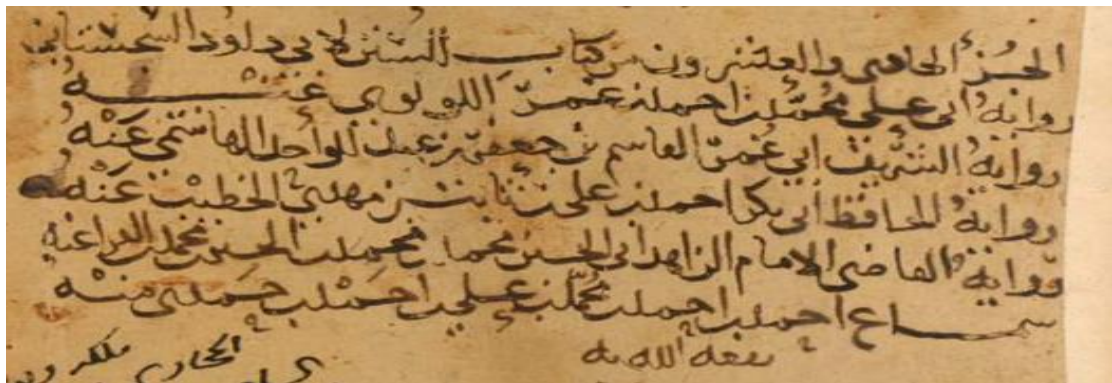 الجزء الحادي والعشرون من كتاب السنن لابي داود السجستاني
رواية ابي علي محمد بن احمد بن عمرو اللولوي عنه
رواية الشريف ابي عمر القاسم بن جعفر بن عبد الواحد الهاشمي عنه
رواية الحافظ ابي بكر احمد بن علي بن ثابت بن مهدي الخطيب عنه
رواية القاضي الامام الزاهد ابي الحسين محمد بن محمد بن الحسين بن محمد بن الفرا عنه
سماع احمد بن احمد بن محمد بن علي بن احمد بن حمدي منه
نفعه الله به